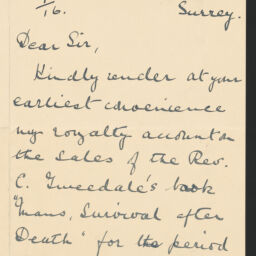 /16. Surrey.
Dear Sir,
Kindly render at your
earliest convenience
my royalty account on
the sales of the Rev.
C. Tweedale's book
"Mans, Survival after
Death" for the period